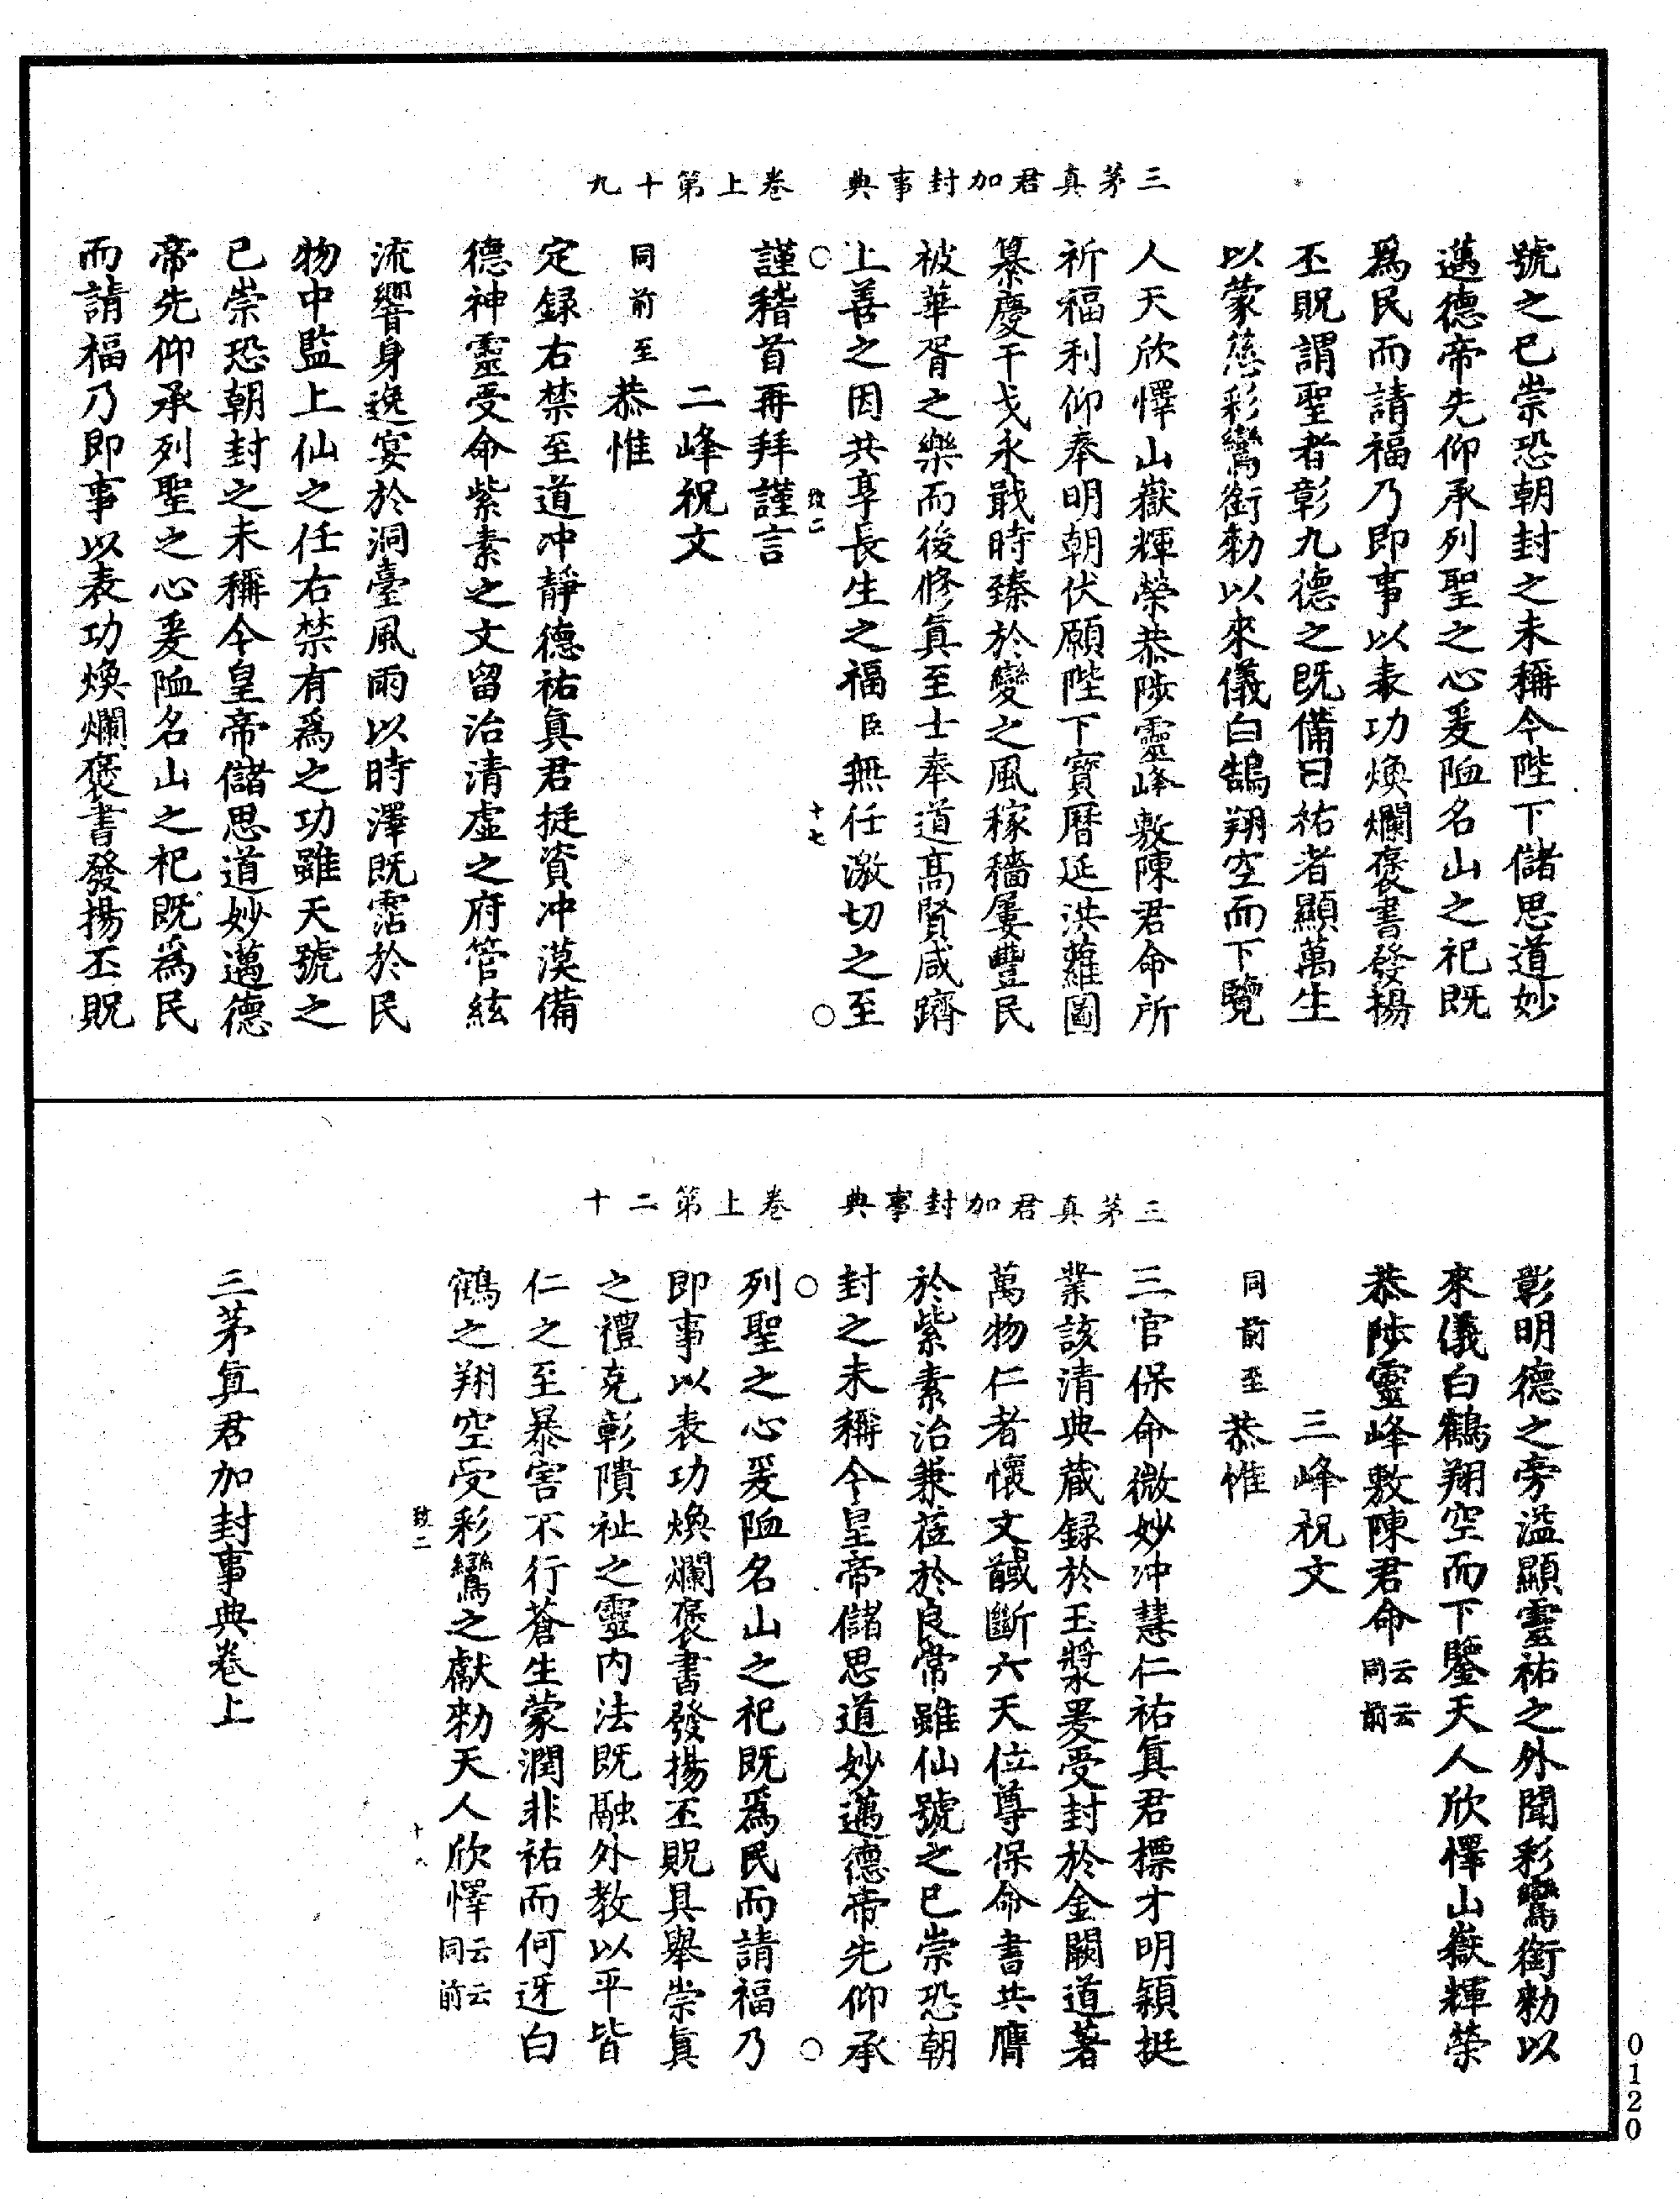 三茅真君加封事典　卷上第十九
號之已崇恐朝封之未稱今陛下儲思道妙
邁德帝先仰承列聖之心爰陟名山之祀既
爲民而請福乃即事以表功煥爛褒書發揚
丕貺謂聖者彰九德之既備曰祐者顯萬生
以蒙慈彩鸞銜勑以來儀白鵠翔空而下覽
人天欣懌山嶽輝榮恭陟靈峰敷陳君命所
祈福利仰奉明朝伏願陛下寶曆延洪蘿圖
纂慶干戈永戢時臻於變之風稼穡屢豐民
被華胥之樂而後修眞至士奉道高賢咸躋
上善之因共享長生之福臣無任激切之至
致二
十七
謹稽首再拜謹言
二峰祝文
同前至恭惟
定録右禁至道冲靜德祐眞君挺資冲漠備
德神靈受命紫素之文留治清虛之府管絃
流響身逸宴於洞臺風雨以時澤既霑於民
物中監上仙之任右禁有爲之功雖天號之
已崇恐朝封之未稱今皇帝儲思道妙邁德
帝先仰承列聖之心爰陟名山之祀既爲民
而請福乃即事以表功煥爛褒書發揚丕貺
三茅真君加封事典　卷上第二十
彰明德之旁溢顯靈祐之外聞彩鸞銜勑以
來儀白鶴翔空而下鑒天人欣懌山嶽輝榮
恭陟靈峰敷陳君命云云同前
三峰祝文
同前至恭惟
三官保命微妙冲慧仁祐眞君標才明穎挺
業該清典蔵録於玉漿爰受封於金闕道著
萬物仁者懷文馘斷六天位尊保命書共膺
於紫素治兼莅於良常雖仙號之已崇恐朝
封之未稱今皇帝儲思道妙邁德帝先仰承
列聖之心爰陟名山之祀既爲民而請福乃
即事以表功煥爛褒書發揚丕貺具舉崇眞
之禮克彰隤祉之靈内法既融外教以平皆
仁之至暴害不行蒼生蒙潤非祐而何迓白
鶴之翔空受彩鸞之獻勑天人欣懌云云同前
致二
十八
三茅眞君加封事典卷上
0120